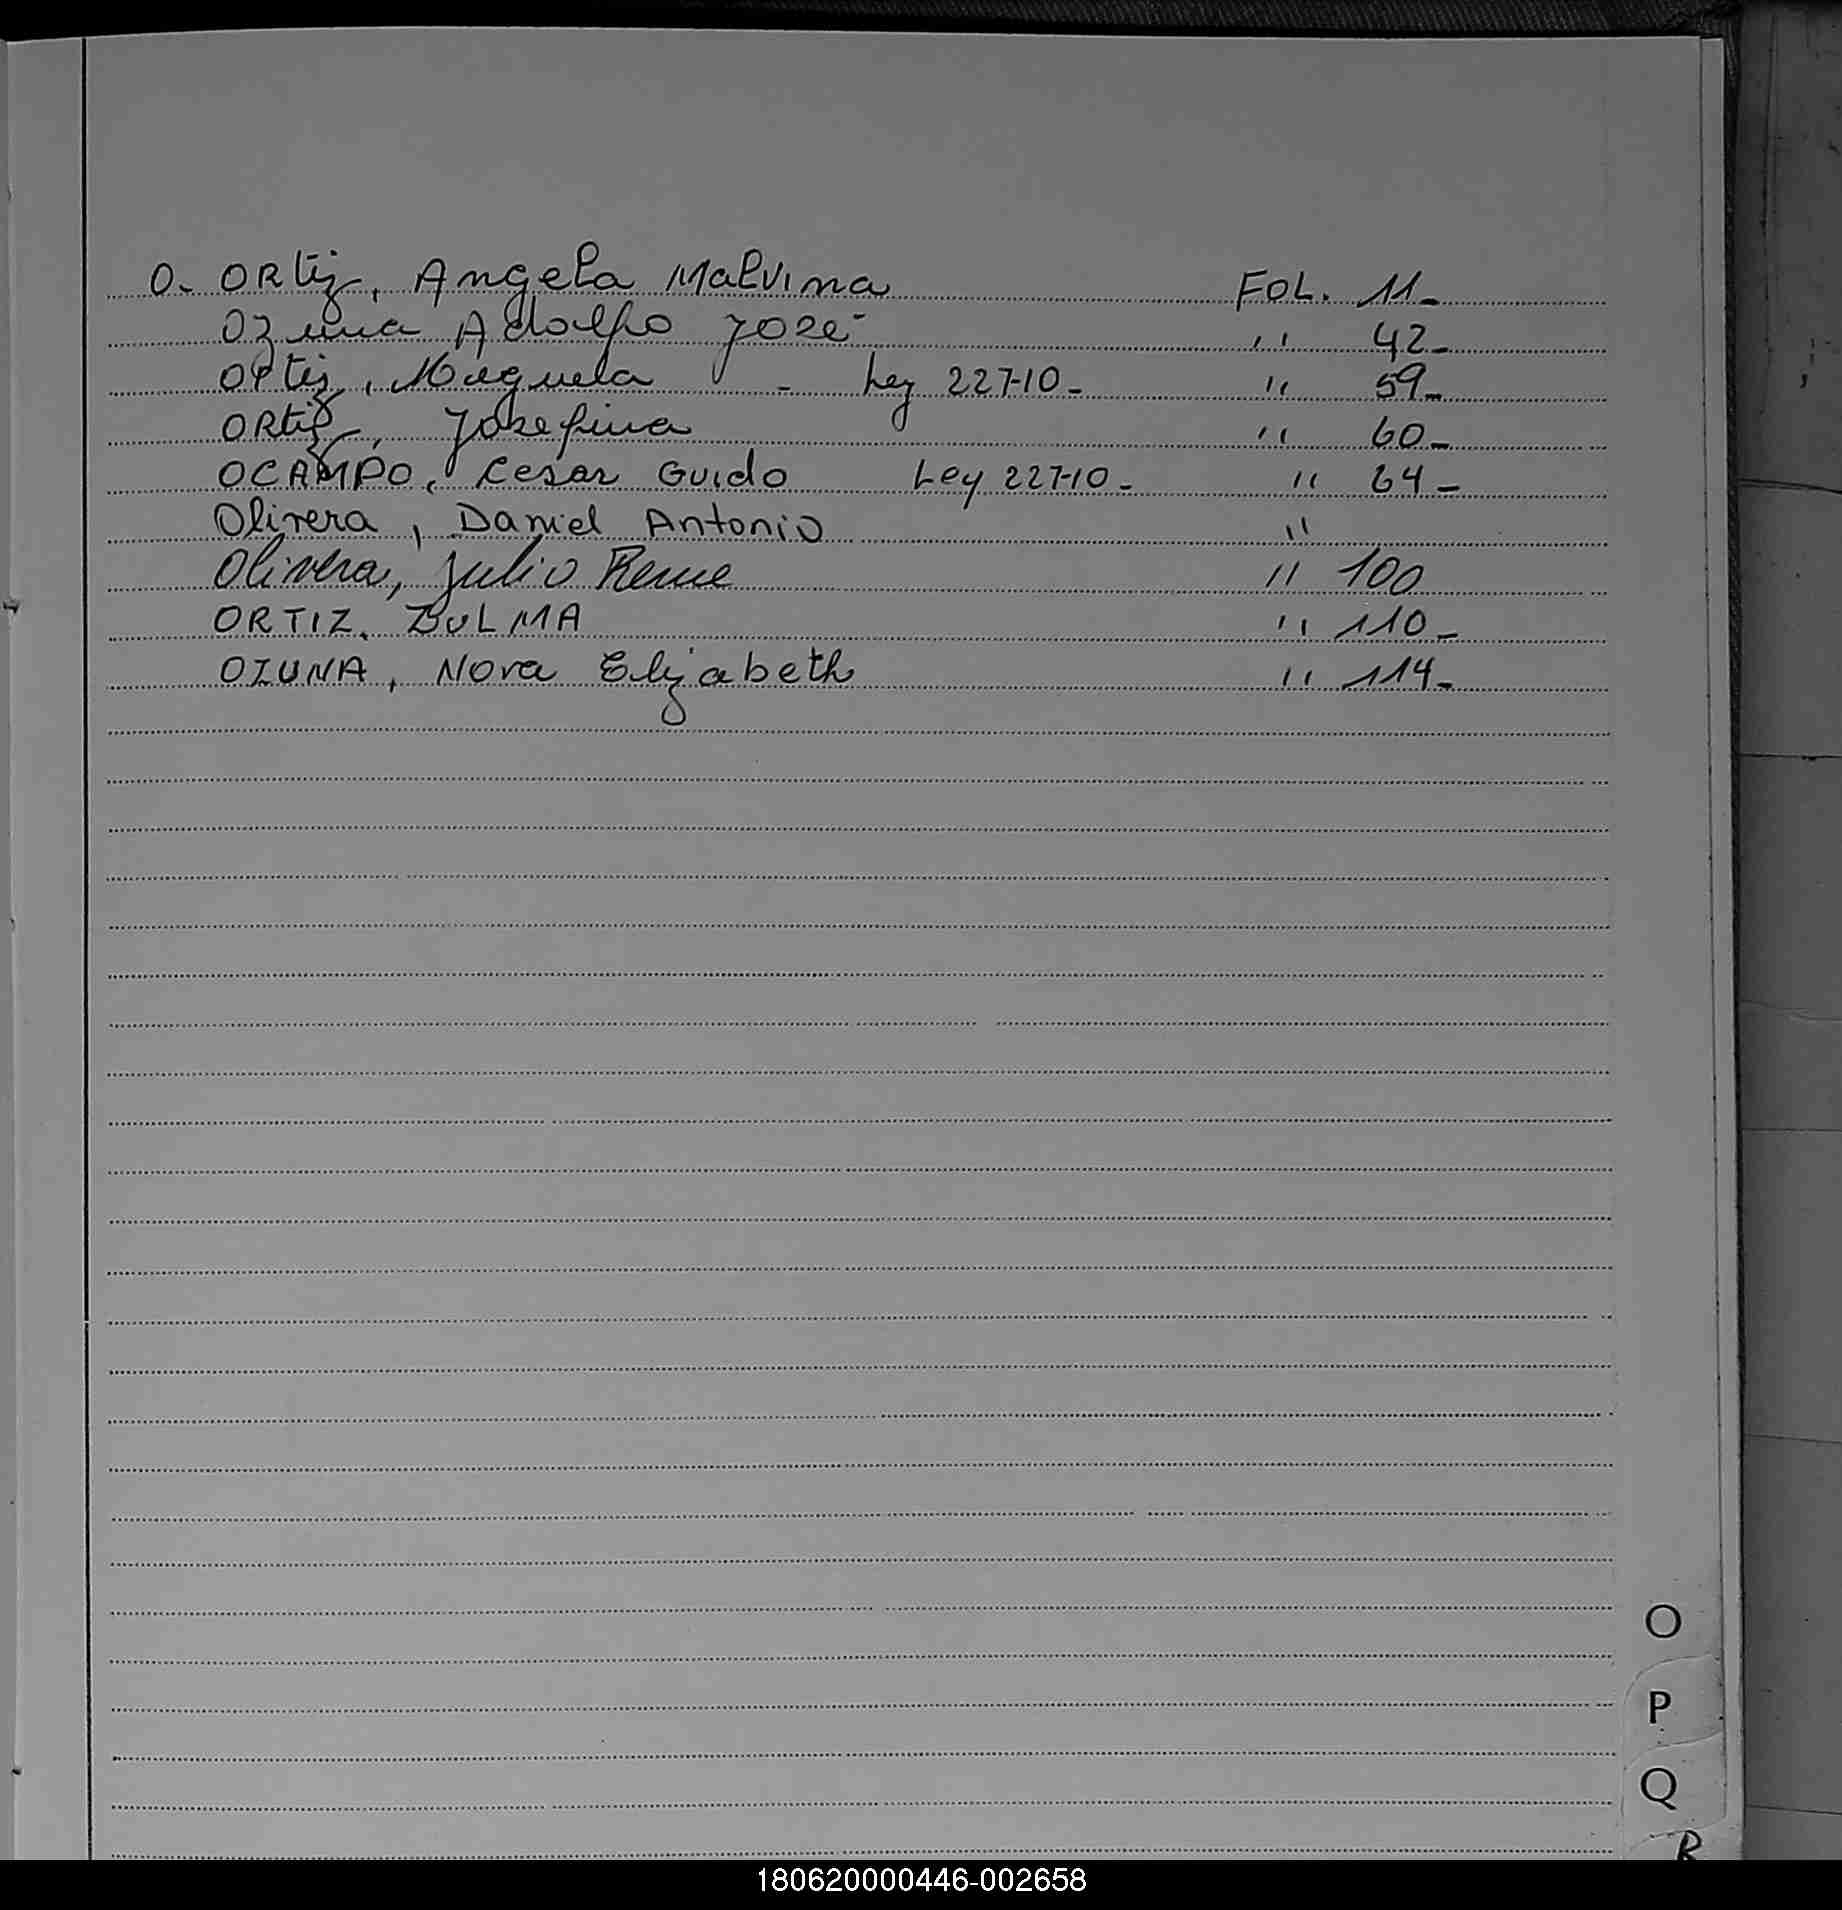 O. ORtiz, Angela Malvina FOL. 11-
Ozuna Adolfo José " 42-
ORtiz, Miguela - Ley 22710- " 59-
ORtiz, Josefina " 60-
OCAMPO, Cesar Guido Ley 22710- " 64-
Olivera, Daniel Antonio "
Olivera, Julio Rene " 100
ORTIZ, ZULMA " 110-
OZUNA, Nora Elizabeth " 114-
O
P
Q
R
180620000446-002658